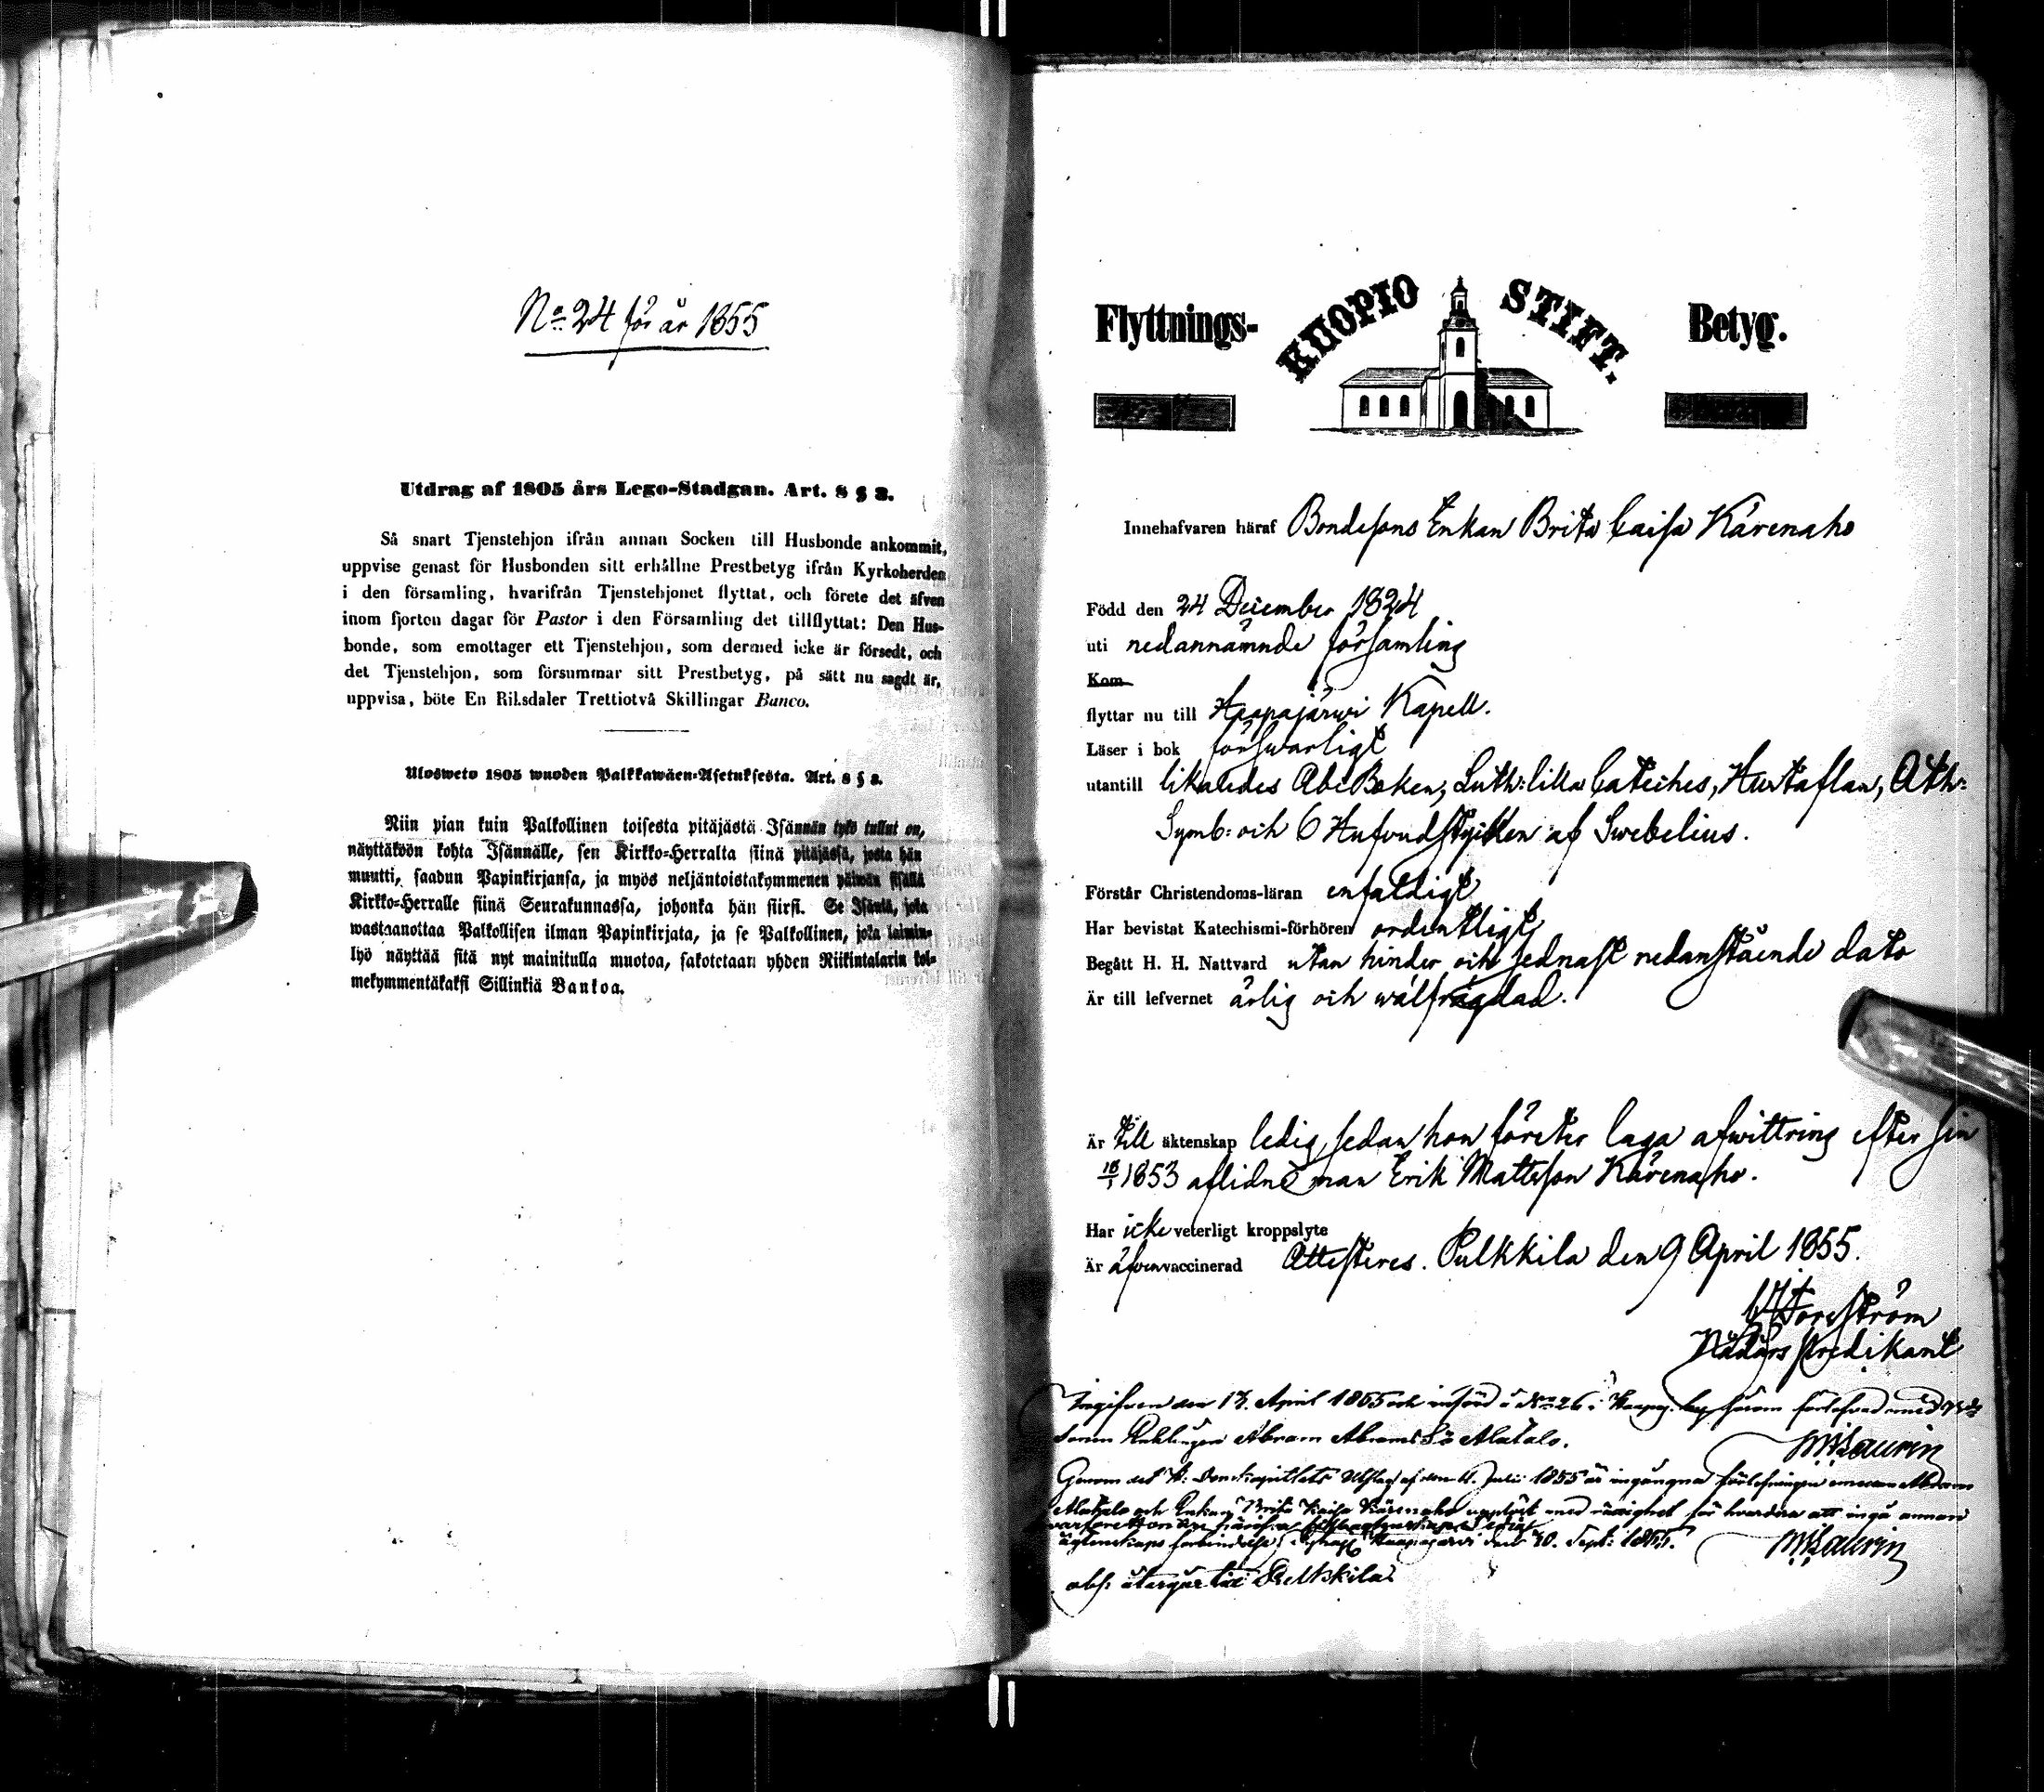 No 24 för år 1855
Utdrag af 1805 års Lego-Stadgan. Art. 8 § 3.
Så snart Tjenstehjon ifrån annan Socken till Husbonde ankommit,
uppvise genast för Husbonden sitt erhållne Prestbetyg ifrån Kyrkoherden
i den församling, hvarifrån Tjenstehjonet flyttat, och förete det äfven
inom fjorton dagar för Pastor i den Församling det tillflyttat: Den Hus-
bonde, som emottager ett Tjenstehjon, som dermed icke är försedt, och
det Tjenstehjon, som försummar sitt Prestbetyg, på sätt nu sagdt är,
uppvisa, böte En Riksdaler Trettiotvå Skillingar Banco.
Ulosweto 1805 wuoden Palkkawäen-Asetuksesta. Art. 8 § 3.
Niin pian kuin Palkollinen toisesta pitäjästä Isännän tykö tullut on,
näyttäköön kohta Isännälle, sen Kirkko-Herralta siinä pitäjässä, josta hän
muutti, saadun Papinkirjansa, ja myös neljäntoistakymmenen päiwän sisällä
Kirkko-Herralle siinä Seurakunnassa, johonka hän siirsi. Se Isäntä, joka
wastaanottaa Palkollisen ilman Papinkirjata, ja se Palkollinen, joka laimin-
lyö näyttää sitä nyt mainitulla muotoa, sakotetaan yhden Riikintalarin kol-
mekymmentäkaksi Sillinkiä Bankoa.
Flyttnings- KUOPIO STIFT. Betyg.
Innehafvaren häraf Bondesons Enkan Brita Caisa Kärenaho
Född den 24 December 1824
uti nedannämnde församling
Kom
flyttar nu till Haapajärwi Kapell.
Läser i bok förswarligt
utantill likaledes Abc Boken, Luth: lilla Cateches, Hustaflan, Ath:
Symb: och 6 Hufvudstycken af Swebelius.
Förstår Christendoms-läran enfaldigt
Har bevistat Katechismi-förhören ordentligt
Begått H. H. Nattvard utan hinder och sednast nedanstående dato
Är till lefvernet ärlig och wälfrägdad.
Är till äktenskap ledig, sedan hon företer laga afwittring efter sin
1853 aflidne man Erik Mattsson Kärenaho.
Har icke veterligt kroppslyte
Är äfven vaccinerad Attesteres. Pulkkila den 9 April 1855.
Forström
Nådårs Predikant
Ingifven den 17. April 1855 och införd å No 26 i Haapaj. förlofvad med
Enklingen Abram Abrams So Alatalo.
Laurin
Genom det Domkapitlets Utslag af den 11. Julii 1855 är ingångna förlofningen emellan Abram
Alatalo och Enkan Brita Kaisa Kärenaho upplöst med rättighet för hvardera att ingå annan
ägtenskaps förbindelse; Haapajärvi den 30. Sept: 1855.
Laurin
återgår till Pulkkila